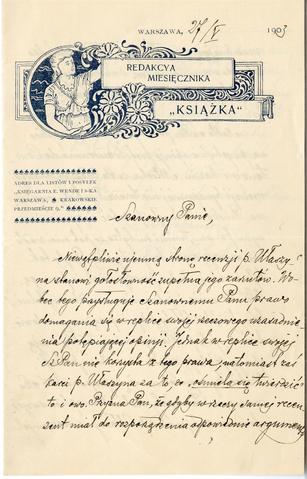 WARSZAWA, 27/V 1903
REDAKCYA
MIESIĘCZNIKA
„KSIĄŻKA"
ADRES DLA LISTÓW I POSYŁEK
„KSIĘGARNIA E. WENDE I S-KA
WARSZAWA, KRAKOWSKIE
PRZEDMIEŚCIE 9."
Szanowny Panie,
Niewątpliwie ujemną stronę recenzji p. Właszy-
na stanowi gołosłowność zupełna jego zarzutów. Wo-
bec tego przysługuje Szanownemu Panu prawo
domagania się w replice swojej rzeczowego uzasadnie-
nia potępiającej opinji. Jednak w replice swojej
Sz. Pan nie korzysta z tego prawa, natomiast zaś
karci p. Właszyna za to, co „ośmiela się twierdzić"
to i owo. Przyzna Pan, że gdyby w rzeczy samej recen-
zent miał do rozporządzenia odpowiednie argumenty